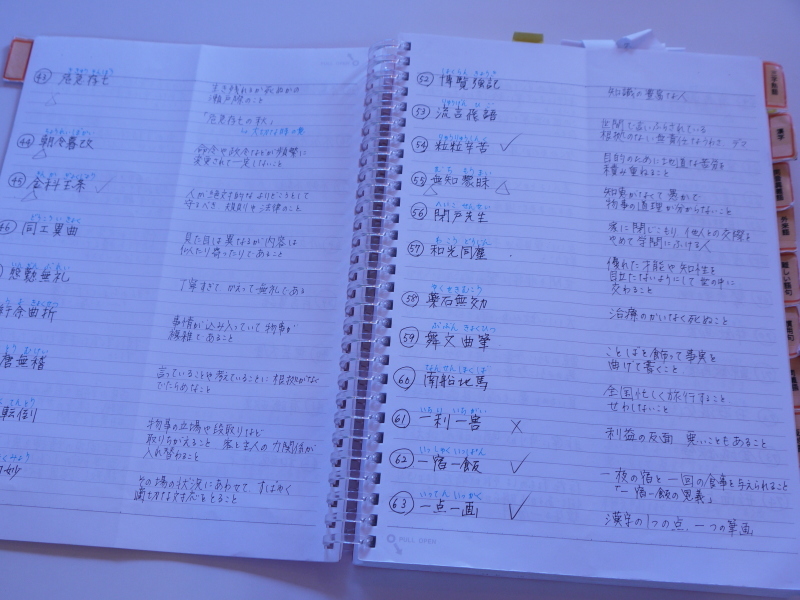 ㊸ 危急存亡
生き残れるか死ぬかの
瀬戸際のこと
「危急存亡の秋」
㊹ 朝令暮改
命令や政令などが頻繁に
変更されて一定しないこと
㊺ 金科玉条
人が絶対的なよりどころとして
守るべき 規則や法律のこと
46 同工異曲
見た目は異なるが内容は
似たり寄ったりであること
慇懃無礼
丁寧すぎて かえって無礼である
余曲折
事情が込み入っていて物事が
複雑であること
唐無稽
言っていることや考えていることに根拠がなく
でたらめなこと
転倒
物事の立場や段取りなど
取りちがえること 客と主人の力関係が
入れ替わること
妙
その場の状況にあわせて すばやく
適切な対応をとること
はくらん きょうき
52 博覧強記
知識の豊富な人
りゅうげん ひご
53 流言飛語
世間で言いふらされている
根拠のない無責任なうわさ デマ
りゅうりゅうしんく
54 粒粒辛苦
目的のために地道な苦労を
積み重ねること
むち もうまい
55 無知蒙昧
知恵がなくて愚かで
物事の道理が分からないこと
へいこ せんせい
56 閉戸先生
家に閉じこもり 他人との交際を
やめて学問にふける人
わこう どうじん
57 和光同塵
優れた才能や知性を
目立たないようにして世の中に
交わること
やくせきむこう
58 薬石無効
治療のかいなく死ぬこと
ぶぶん きょくひつ
59 舞文曲筆
ことばを飾って事実を
曲げて書くこと
なんせん ほくば
60 南船北馬
全国忙しく旅行すること
せわしないこと
いちり いちがい
61 一利一害
利益の反面 悪いこともあること
いっしゅく いっぱん
62 一宿一飯
一夜の宿と 一回の食事を与えられること
「一宿一飯の恩義」
いってん いっかく
63 一点一画
漢字の1つの点、一つの筆画
PULL OPEN